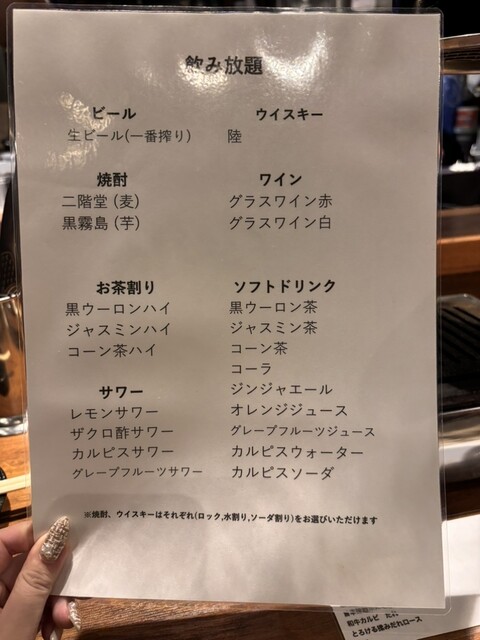 飲み放題
ビール
生ビール(一番搾り)
焼酎
二階堂 (麦)
黒霧島 (芋)
お茶割り
黒ウーロンハイ
ジャスミンハイ
コーン茶ハイ
サワー
レモンサワー
ザクロ酢サワー
カルピスサワー
グレープフルーツサワー
ウイスキー
陸
ワイン
グラスワイン赤
グラスワイン白
ソフトドリンク
黒ウーロン茶
ジャスミン茶
コーン茶
コーラ
ジンジャエール
オレンジジュース
グレープフルーツジュース
カルピスウォーター
カルピスソーダ
※焼酎、ウイスキーはそれぞれ(ロック,水割り,ソーダ割り)をお選びいただけます
和牛カルビ たれ
とろける揉みだれロース